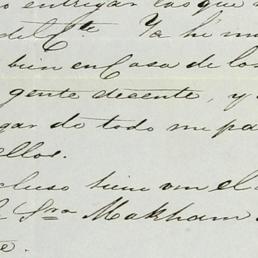 entregar los que
del Cte Ya he
bien en Casa de los
gente decente, y
gar do todo me pa
ellos.
cluso bien un el
Sra Makham
te.